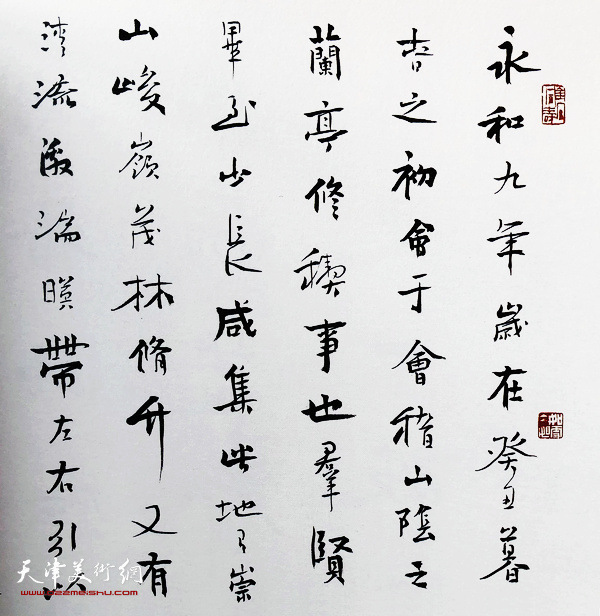 永和九年歲在癸丑暮
春之初會于會稽山陰之
蘭亭修稧事也羣賢
畢至少長咸集此地有崇
山峻嶺茂林脩竹又有
清流激湍暎帶左右引以
天津美術網
www.022meishu.com